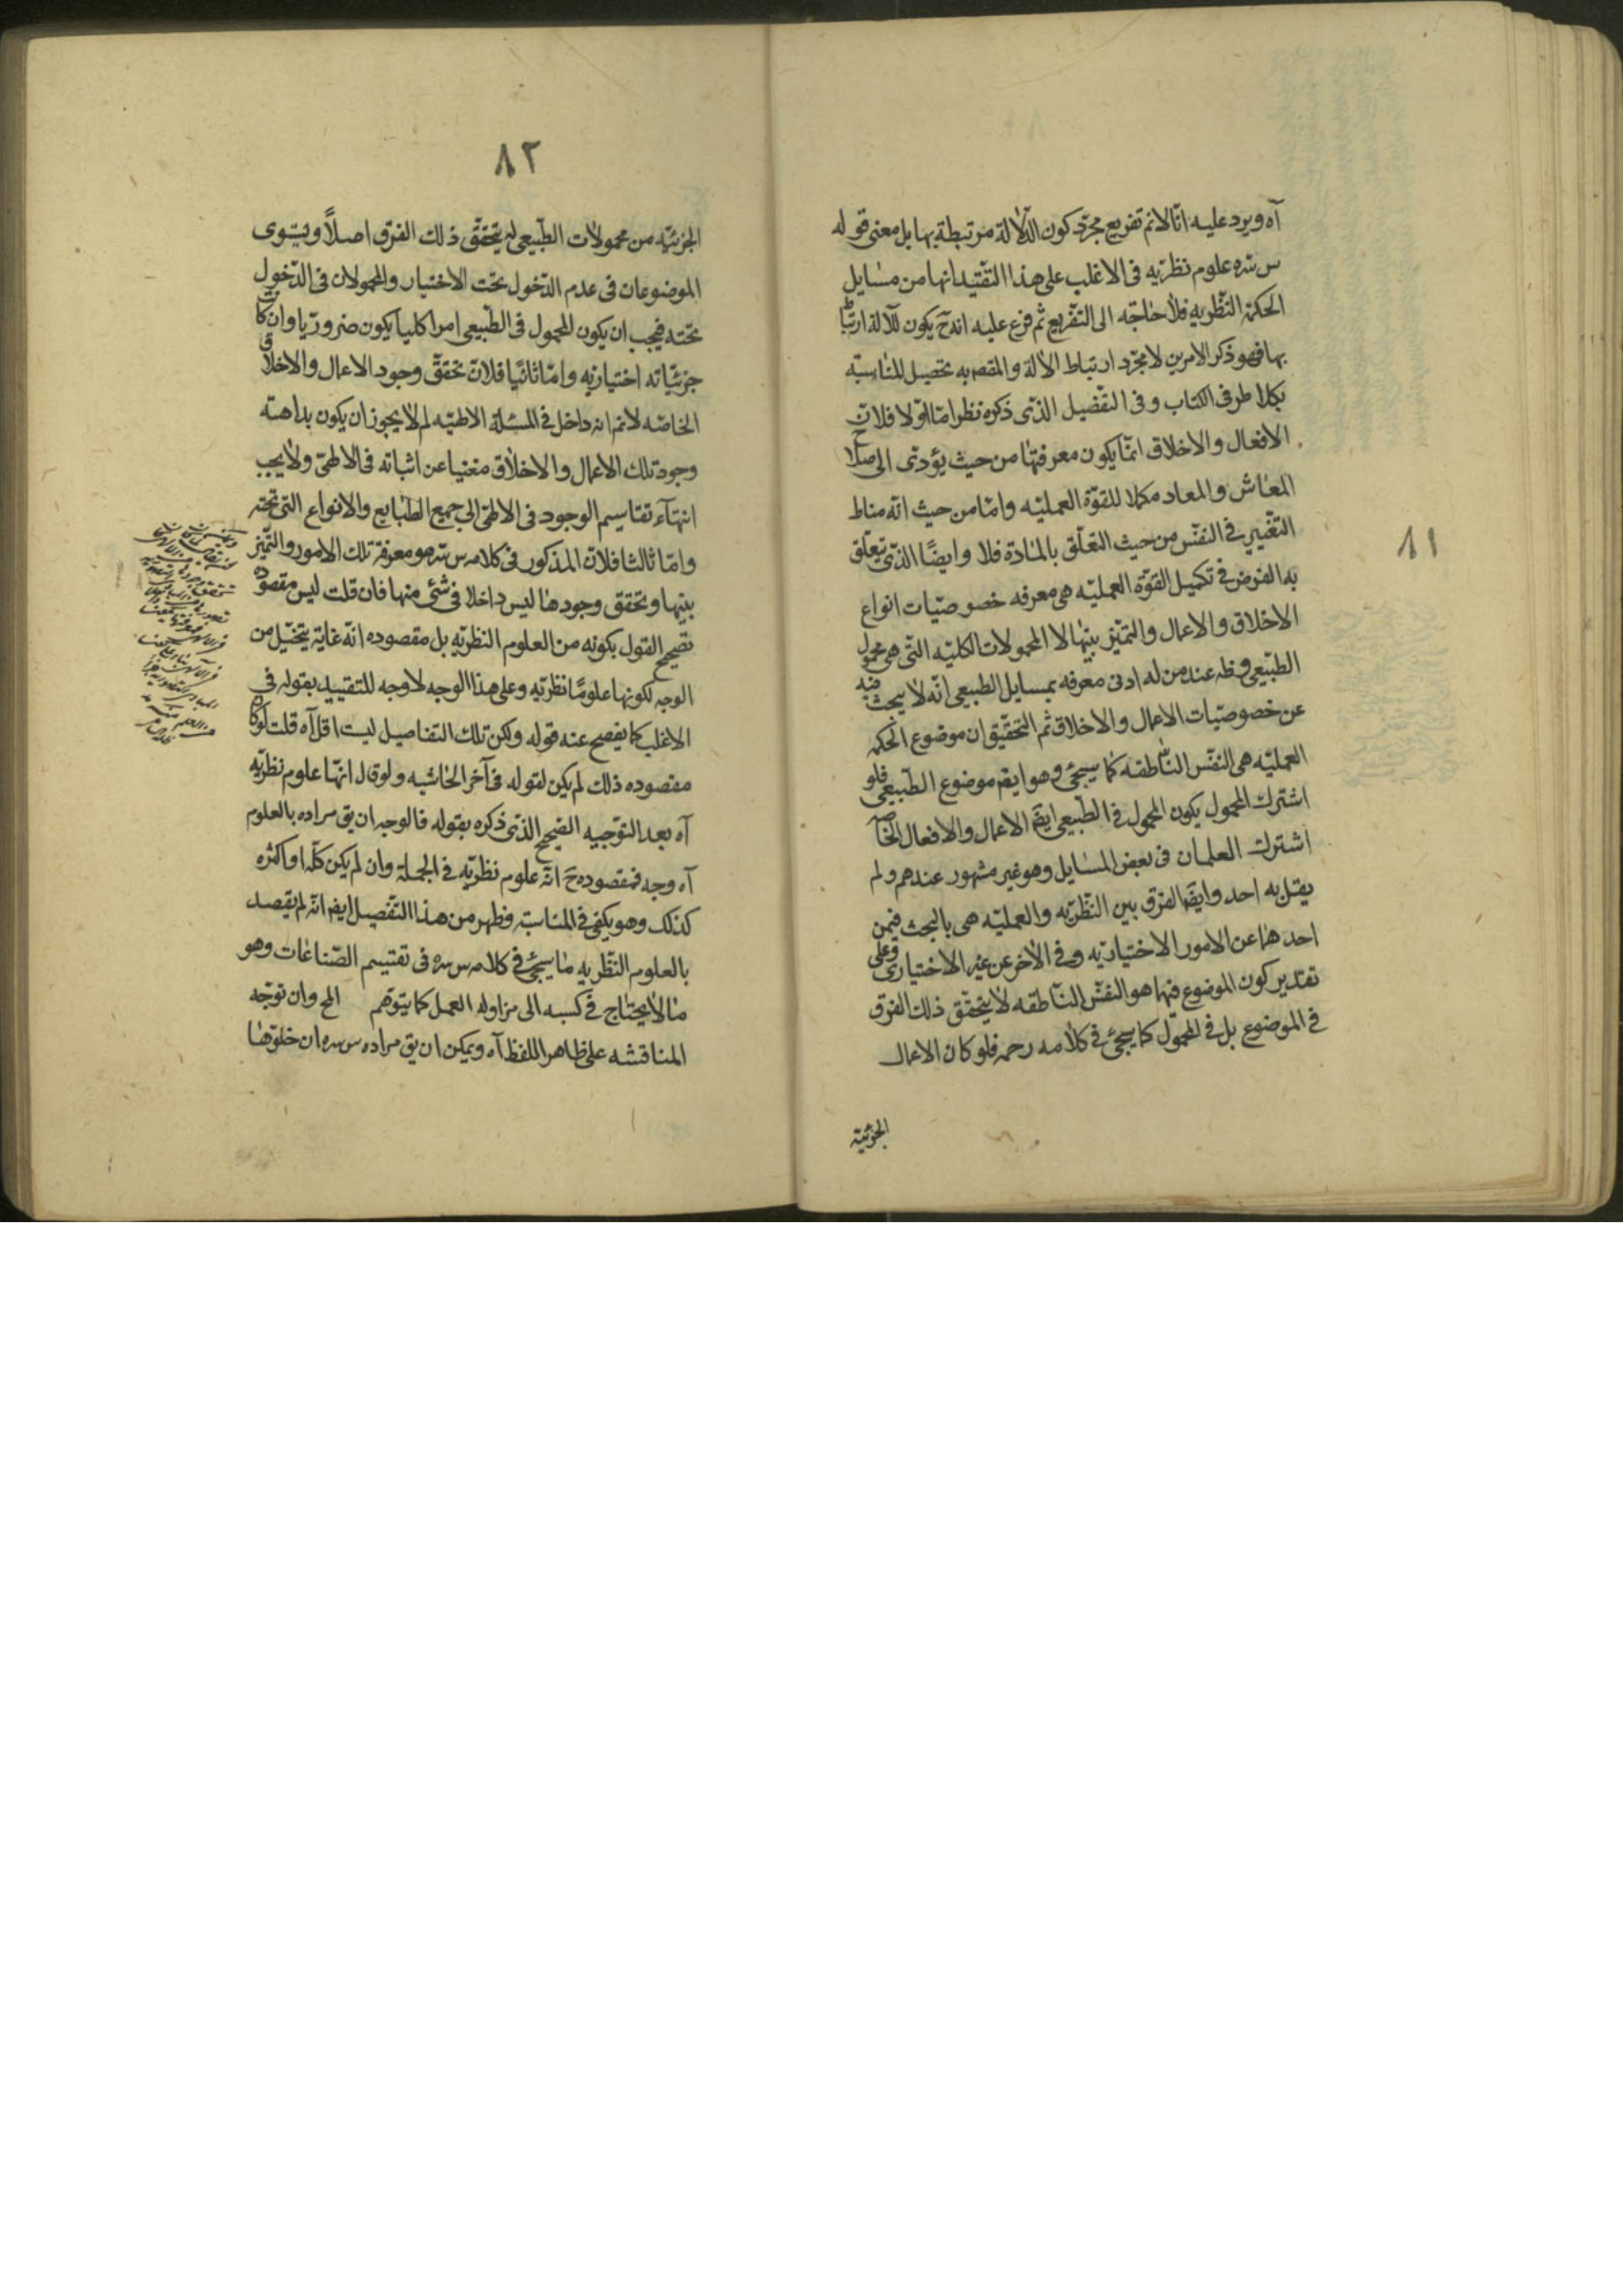 آه ويرد عليه انّا لانم تفريع مجرّد كون الآلة مرتبطة بها بل معنى قوله
س سره علوم نظريه فى الاغلب على هذا التقييد انها من مسايل
الحكمة النظريه فلا حاجة الى التفريع ثم فرع عليه انه ح يكون للآلة ارتباط
بها فهو ذكر الامرين لا مجرّد ارتباط الالة والمقصد به تحصيل المناسبة
بكلا طرفى الكتاب وفى التفصيل الذى ذكره نظر امّا اوّلا فلانّ
الافعال والاخلاق انمّا يكون معرفتها من حيث يؤدى الى صلاح
المعاش والمعاد مكملا للقوّة العمليّه وامّا من حيث انّه مناط
التّغيير فى النفس من حيث التعلّق بالمادّة فلا وايضًا الذى يتعلّق
به الغرض فى تكميل القوّة العمليّه هى معرفه خصوصيّات انواع
الاخلاق والاعمال والتميّز بينها لا المحمولات الكليّه التّى هى محمول
الطبّيعى وظ عند من له ادنى معرفه بمسايل الطبيعى انّه لا يبحث فيه
عن خصوصيّات الاعمال والاخلاق ثم التحقّيق ان موضوع الحكمه
العمليّه هى النفس الناطقه كما سيجئ وهو ايضم موضوع الطّبيعى فلو
اشترك المحمول يكون المحمول فى الطّبيعى ايضَم الاعمال والافعال الخاصّه
اشترك العلمان فى بعض المسايل وهو غير مشهور عندهم ولم
يقل به احد وايضَم الفرق بين النّظريّه والعمليّه هى بالبحث فيمن
احدهما عن الامور الاختياريّه وفى الآخر عن غير الاختيارى وعلى
تقدير كون الموضوع فيها هو النفس النّاطقه لا يتحقّق ذلك الفرق
فى الموضوع بل فى المحمول كما سيجئ فى كلامه رحمه فلو كان الاعمال
الجزئية
٨١
٨٢
الجزئيّه من محمولات الطّبيعى لم يتحقّق ذلك الفرق اصلاً ويستوى
الموضوعان فى عدم الدّخول تحت الاختيار والمحمولان فى الدّخول
تحته فيجب ان يكون المحمول فى الطّبيعى امرا كليا يكون ضروريّا وان كانت
جزئيّاته اختياريّه وامّا ثانيًا فلانّ تحقّق وجود الاعمال والاخلاق
الخاصّه لانم انه داخل فى المسئلة الالهيّه لم لا يجوز ان يكون بداهة
وجود تلك الاعمال والاخلاق مغنيا عن اثباته فى الالهىّ ولا يجب
انتهآء تقاسيم الوجود فى الالهى الى جميع الطّبايع والانواع التى تحته
وامّا ثالثا فلانّ المذكور فى كلامه س سره هو معرفة تلك الامور والتميّز
بينها وتحقق وجودها ليس داخلا فى شئ منها فان قلت ليس مقصوده
تصحيح القول بكونه من العلوم النظريّه بل مقصوده انّه غاية يتخيّل من
الوجه لكونها علومًا نظريّه وعلى هذا الوجه لا وجه للتقييد بقوله فى
الاغلب كما يفصح عنه قوله ولكن تلك التفاصيل ليست اقل آه قلت لو كان
مقصوده ذلك لم يكن لقوله فى آخر الحاشيه ولو قال انّها علوم نظريّه
آه بعد التوّجيه الصّحيح الذى ذكره بقوله فالوجه ان يق مراده بالعلوم
آه وجه فمقصوده حَ انّه علوم نظريّه فى الجملة وان لم يكن كلّه او اكثره
كذلك وهو يكفى فى المناسبة وظهر من هذا التّفصيل ايضم انّه لم يقصد
بالعلوم النّظريه ما سيجئ فى كلامه س سره فى تقسيم الصّناعات وهو
ما لا يحتاج فى كسبه الى مزاوله العمل كما يتوهّم المح وان توجّه
المناقشه على ظاهر اللفظ آه ويمكن ان يق مراده س سره ان خلوّها